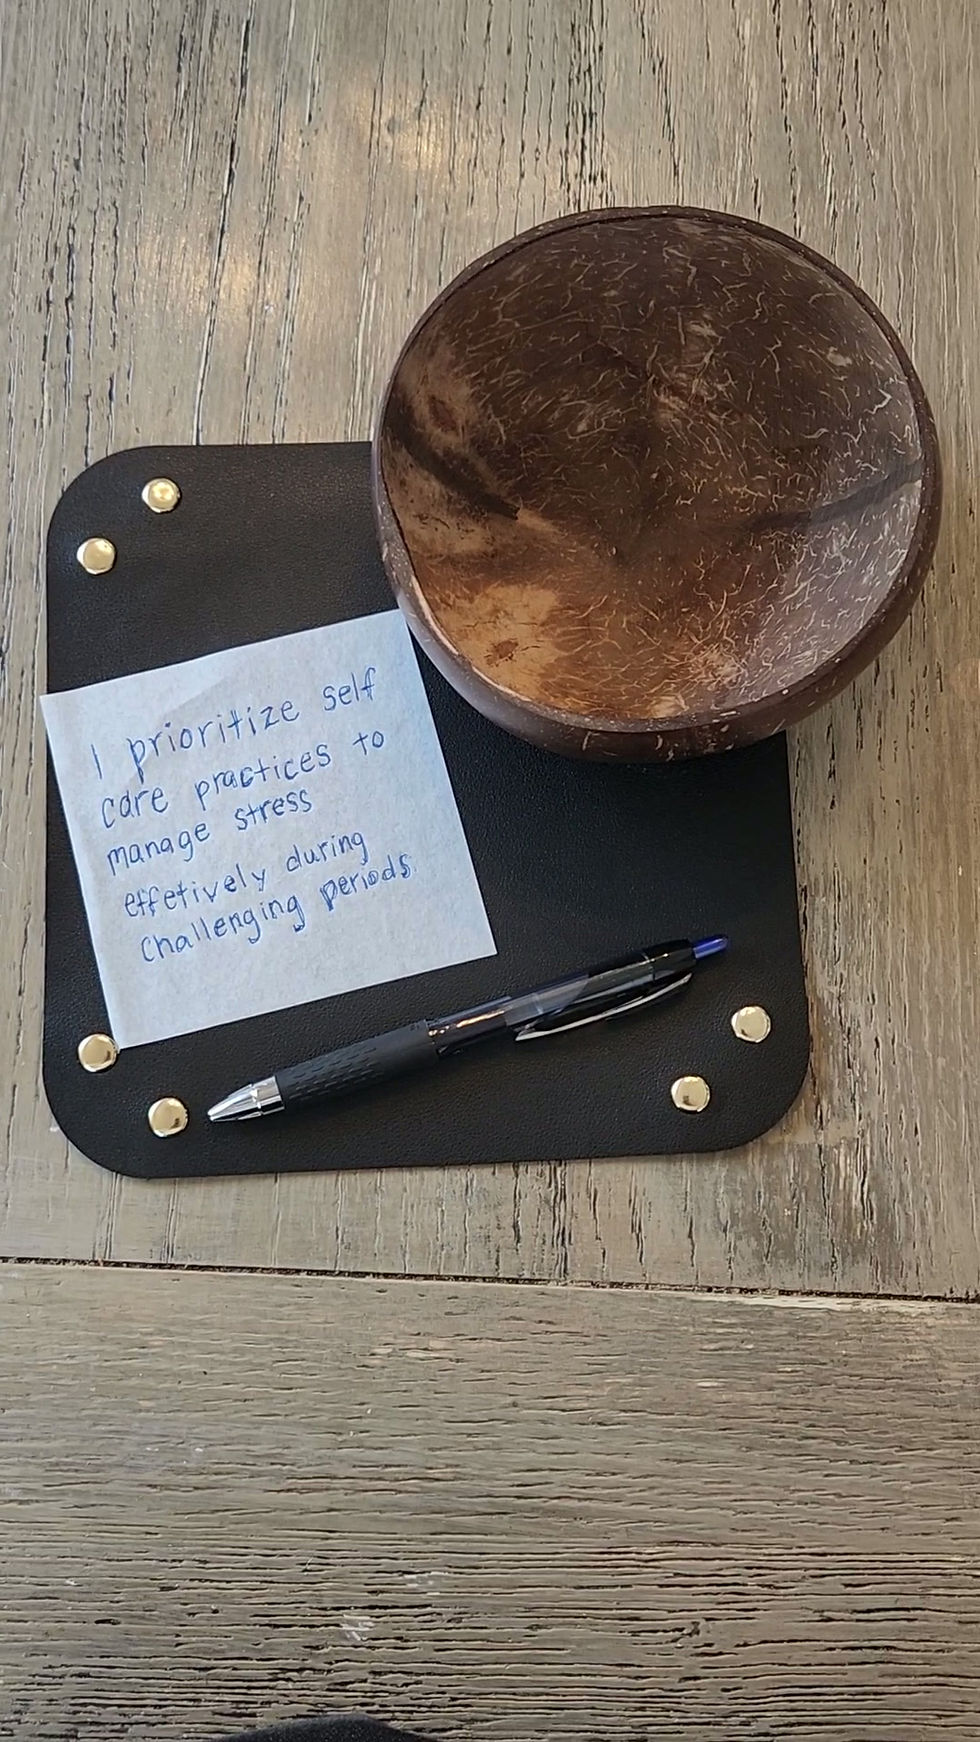 I prioritize self
care practices to
manage stress
effetively during
challenging periods.